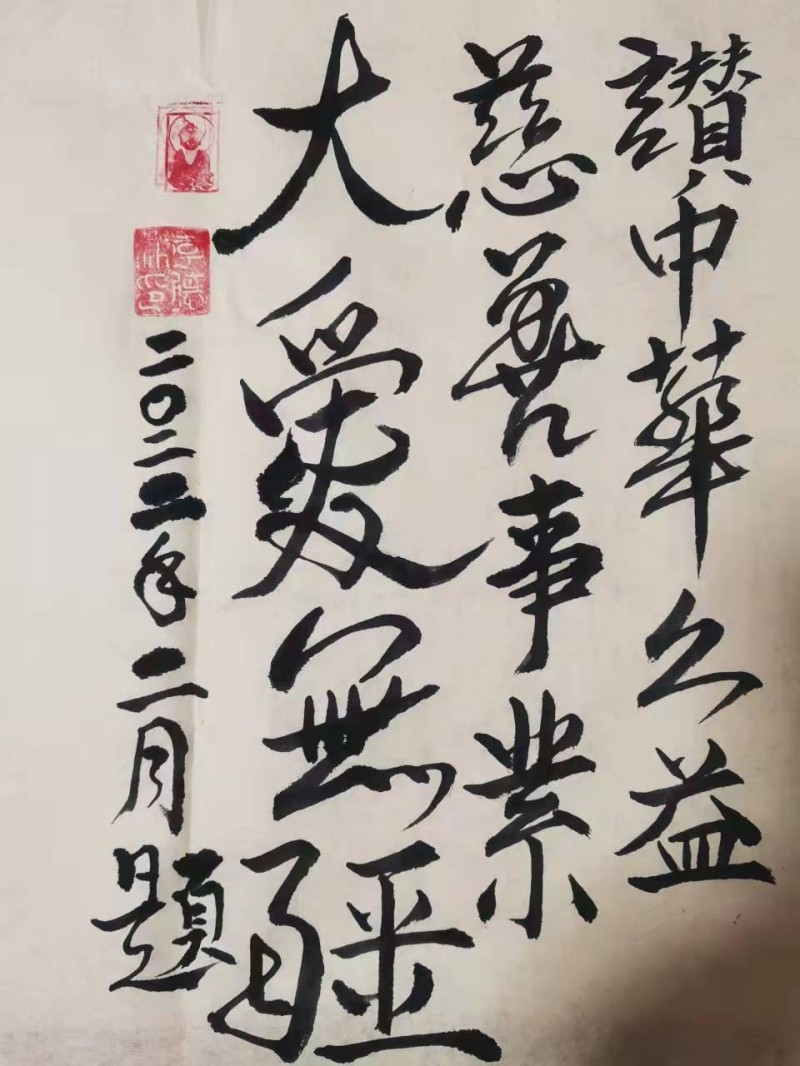 讃中華公益
慈善事業
大愛無疆
二〇二二年二月題